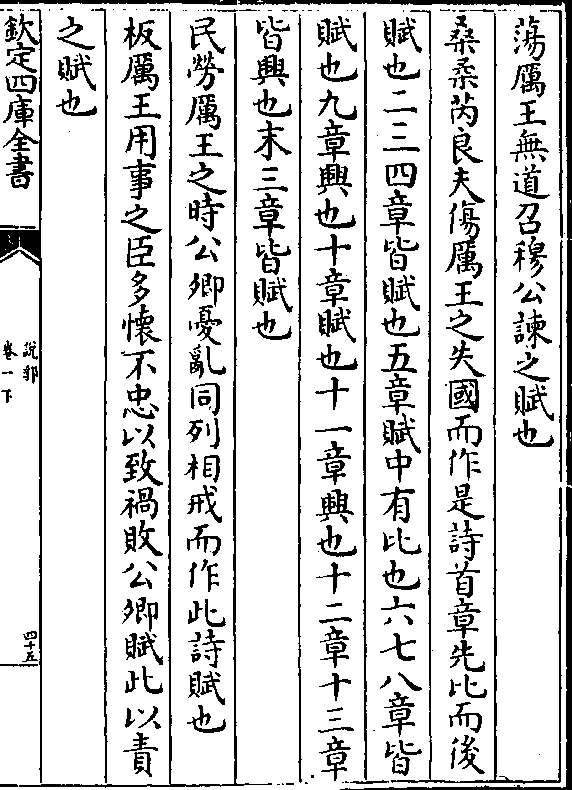 蕩厲王無道召穆公諫之賦也
桑柔芮良夫傷厲王之失國而作是詩首章先比而後
賦也二三四章皆賦也五章賦中有比也六七八章皆
賦也九章興也十章賦也十一章興也十二章十三章
皆興也末三章皆賦也
民勞厲王之時公卿憂亂同列相戒而作此詩賦也
板厲王用事之臣多懷不忠以致禍敗公卿賦此以責
之賦也
欽定四庫全書
說郛
卷一下
四十五